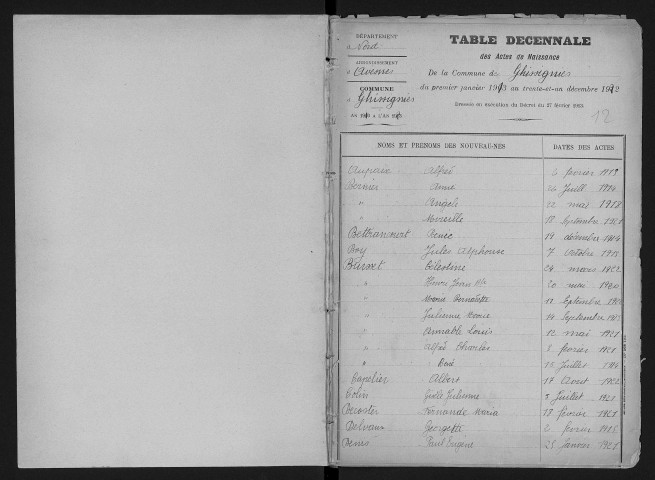 DÉPARTEMENT
d Nord
ARRONDISSEMENT
d'Avesnes
COMMUNE
d Ghissignies
TABLE DÉCENNALE
des Actes de Naissance
De la Commune de Ghissignies
du premier janvier 1913 au trente-et-un décembre 1922
Dressée en exécution du Décret du
12
NOMS ET PRÉNOMS DES NOUVEAU-NÉS DATES DES ACTES
Alfred 6 février 1913
Anne Juill 1914
" Angèle 22 mai 1918
" Mireille 18 Septembre
Bettrancourt Renée 19 décembre
Bay Jules Alphonse 7 octobre
Buisset Célestine 24 mars 1922
" Henri Jean 20 mai 1920
" Bernadette 11 Septembre
" Julienne Marie 14 Septembre
" Aimable Louis 12 mai 1921
" Alfred Charles 2 février 1921
" René Juillet
Capelier Albert 17 Août 1922
Colin Gisèle Julienne Juillet 1921
Decoster Fernande Maria 18 février 1921
Delvaux Georgette 2 février 1915
Denis Paul Eugène 25 Janvier 1921